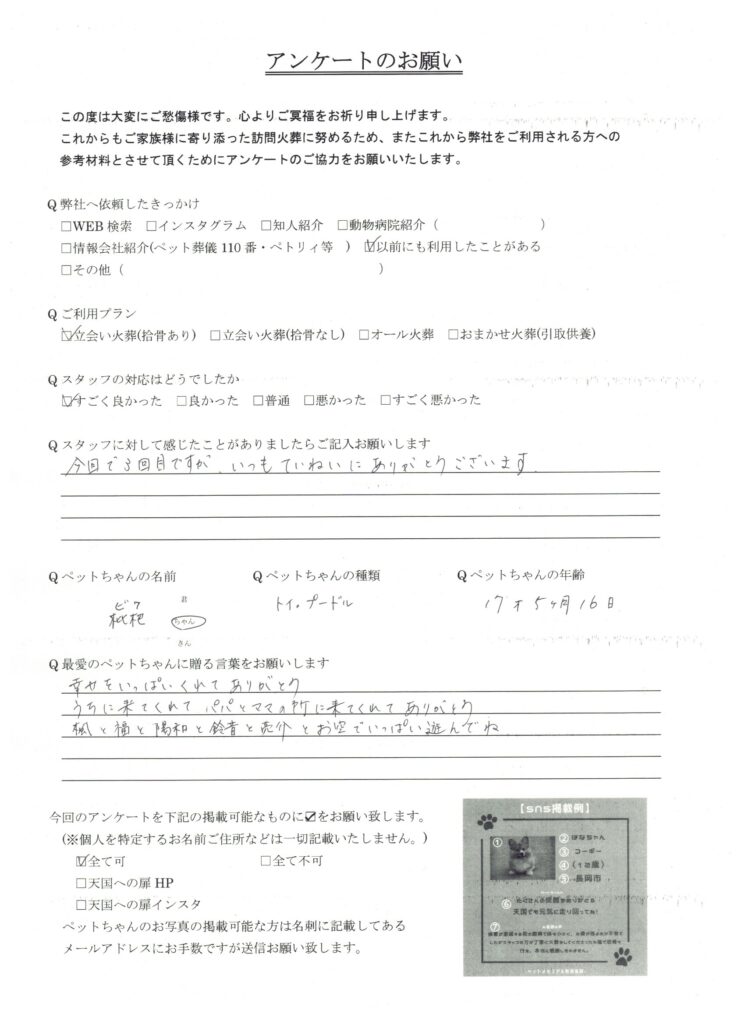 アンケートのお願い
この度は大変にご愁傷様です。心よりご冥福をお祈り申し上げます。
これからもご家族様に寄り添った訪問火葬に努めるため、またこれから弊社をご利用される方への
参考材料とさせて頂くためにアンケートのご協力をお願いいたします。
Q 弊社へ依頼したきっかけ
□WEB 検索 □インスタグラム □知人紹介 □動物病院紹介（ ）
□情報会社紹介(ペット葬儀 110 番・ペトリィ等 ) ☑以前にも利用したことがある
□その他（ ）
Q ご利用プラン
☑立会い火葬(拾骨あり) □立会い火葬(拾骨なし) □オール火葬 □おまかせ火葬(引取供養)
Q スタッフの対応はどうでしたか
☑すごく良かった □良かった □普通 □悪かった □すごく悪かった
Q スタッフに対して感じたことがありましたらご記入お願いします
今回で3回目ですが、いつもていねいにありがとうございます
Q ペットちゃんの名前 Q ペットちゃんの種類 Q ペットちゃんの年齢
君
ビワ
枇杷 ちゃん トイ・プードル 17才5ヶ月16日
さん
Q 最愛のペットちゃんに贈る言葉をお願いします
幸せをいっぱいくれてありがとう
うちに来てくれて パパとママの所に来てくれてありがとう
楓と橘と陽和と鈴音と亮介とお空でいっぱい遊んでね
今回のアンケートを下記の掲載可能なものに☑をお願い致します。
(※個人を特定するお名前ご住所などは一切記載いたしません。)
☑全て可 □全て不可
□天国への扉 HP
□天国への扉インスタ
ペットちゃんのお写真の掲載可能な方は名刺に記載してある
メールアドレスにお手数ですが送信お願い致します。
【sns掲載例】
① ② はなちゃん
③ コーギー
④ （12歳）
⑤ 長岡市
⑥
天国でも元気に走り回ってね！
⑦